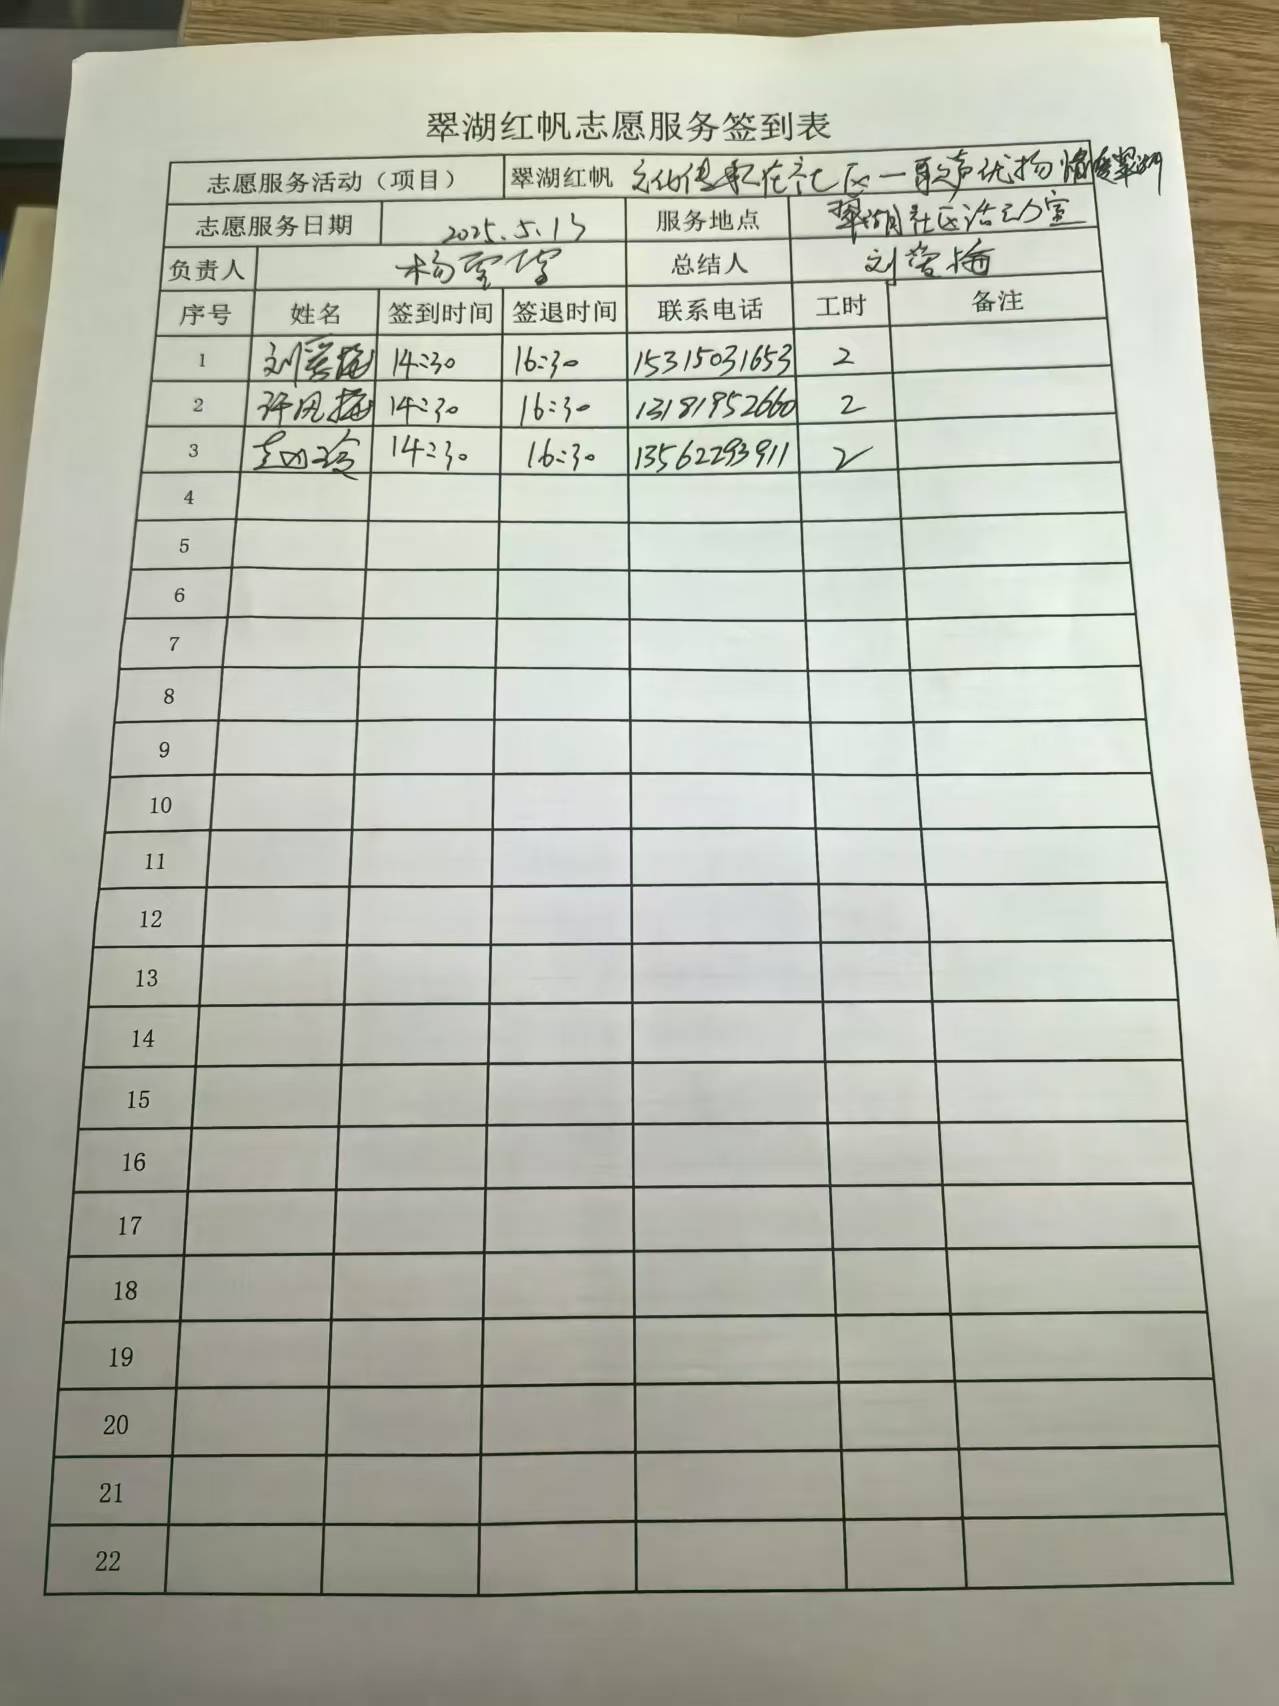 翠湖红帆志愿服务签到表
志愿服务活动（项目） 翠湖红帆 文化传承在社区一歌声优扬 情暖翠湖
志愿服务日期 2025.5.13 服务地点 翠湖社区活动室
负责人 杨 总结人 刘 梅
序号 姓名 签到时间 签退时间 联系电话 工时 备注
1 刘 梅 14:30 16:30 15315031653 2
2 许凤梅 14:30 16:30 13181952660 2
3 14:30 16:30 13562293911 2
4
5
6
7
8
9
10
11
12
13
14
15
16
17
18
19
20
21
22